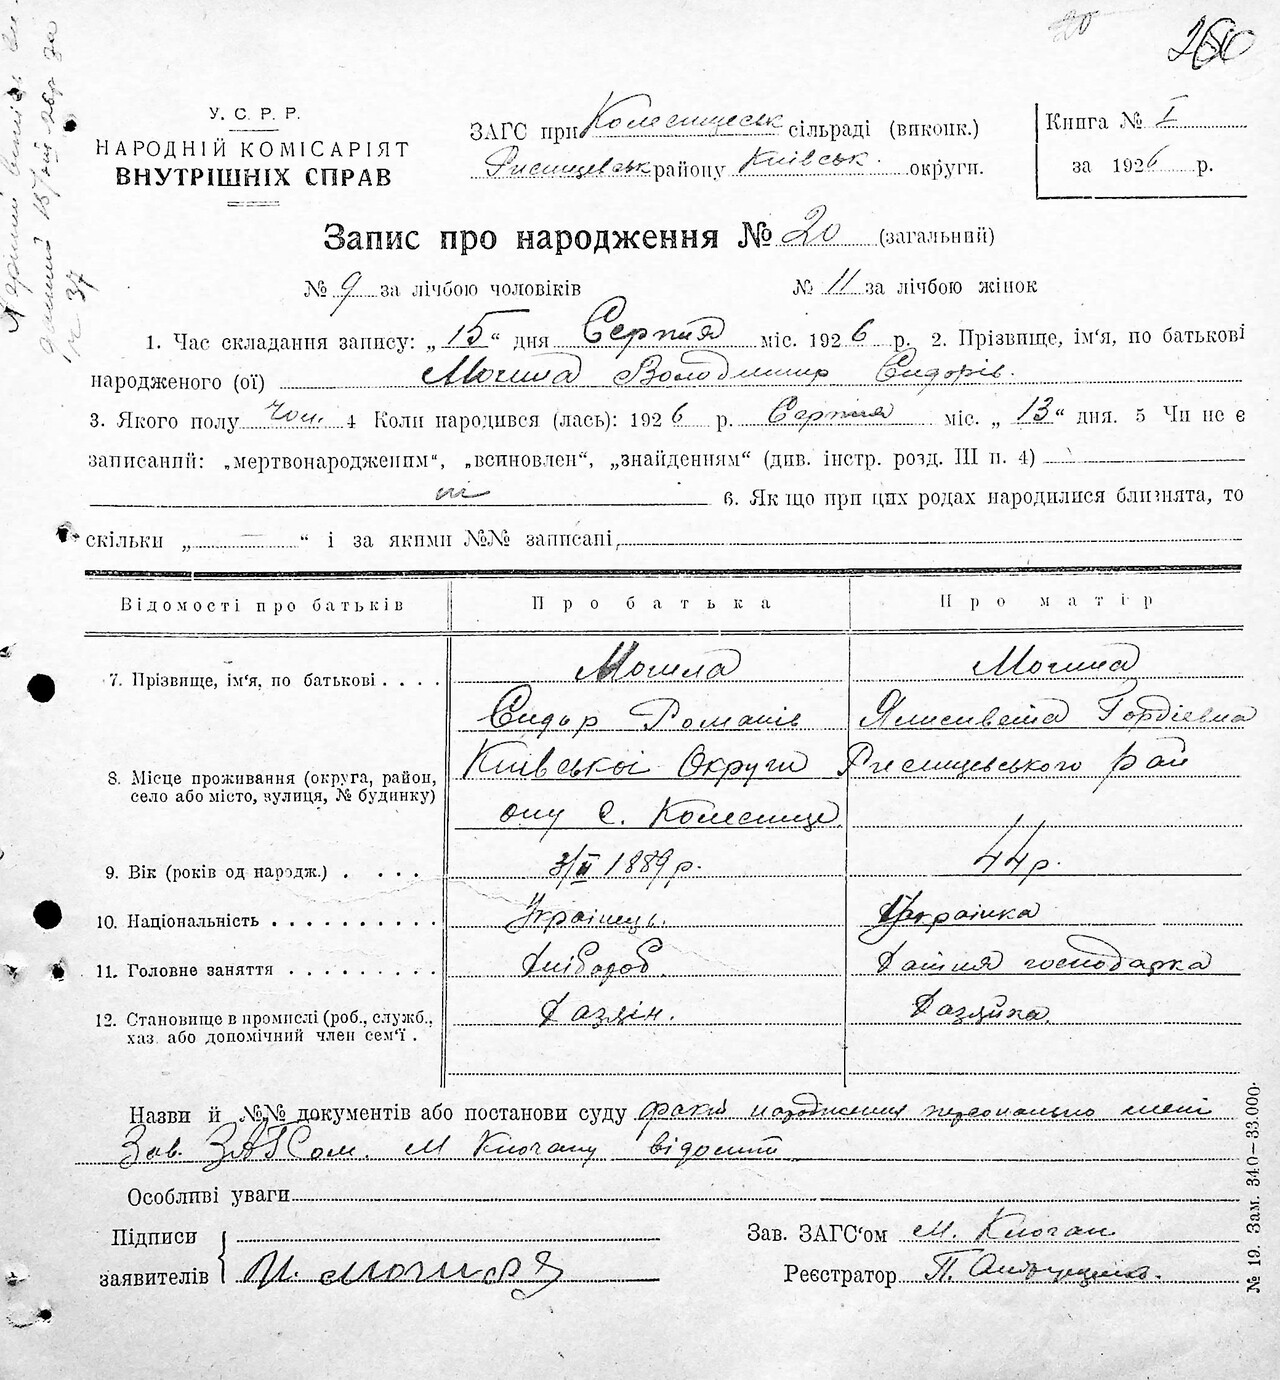 20
260
У. С. Р. Р.
НАРОДНІЙ КОМІСАРІЯТ
ВНУТРІШНІХ СПРАВ
ЗАГС при Колесищеськ сільраді (виконк.)
Ржищевськ району Київськ. округи.
Книга № I
за 1926 р.
Запис про народження № 20 (загальний)
№ 9 за лічбою чоловіків № 11 за лічбою жінок
1. Час складання запису: „15“ дня Серпня міс. 1926 р. 2. Прізвище, ім‘я, по батькові
народженого (ої) Могила Володимир Сидорів.
3. Якого полу чол. 4 Коли народився (лась): 1926 р. Серпня міс. „13“ дня. 5 Чи не є
записаний: „мертвонародженим“, „всиновлен“, „знайденням“ (див. інстр. розд. III п. 4)
ні 6. Якщо при цих родах народилися близнята, то
скільки „ — “ і за якими №№ записані,
Відомості про батьків Про батька Про матір
7. Прізвище, ім‘я, по батькові . . . . Могила Могила
Сидор Романів Ялисивета Гордієвна
8. Місце проживання (округа, район, село або місто, вулиця, № будинку) Київської Округи Ржищевського рай
ону с. Колесище
9. Вік (років од народж.) . . . . 3/II 1889 р. 44 р.
10. Національність . . . . . . . . . . Українець. Українка
11. Головне заняття . . . . . . . . . Хлібороб. Хатня господарка
12. Становище в промислі (роб., служб., хаз. або допомічний член сем‘ї . Хазяїн. Хазяйка.
Назви й №№ документів або постанови суду факт народження персонально мені
Зав. ЗАГСом. М Ключану відомий
Особливі уваги
Підписи Зав. ЗАГС‘ом М.
заявителів Могила Реєстратор П.
№ 19. Зам. 340—33.000.